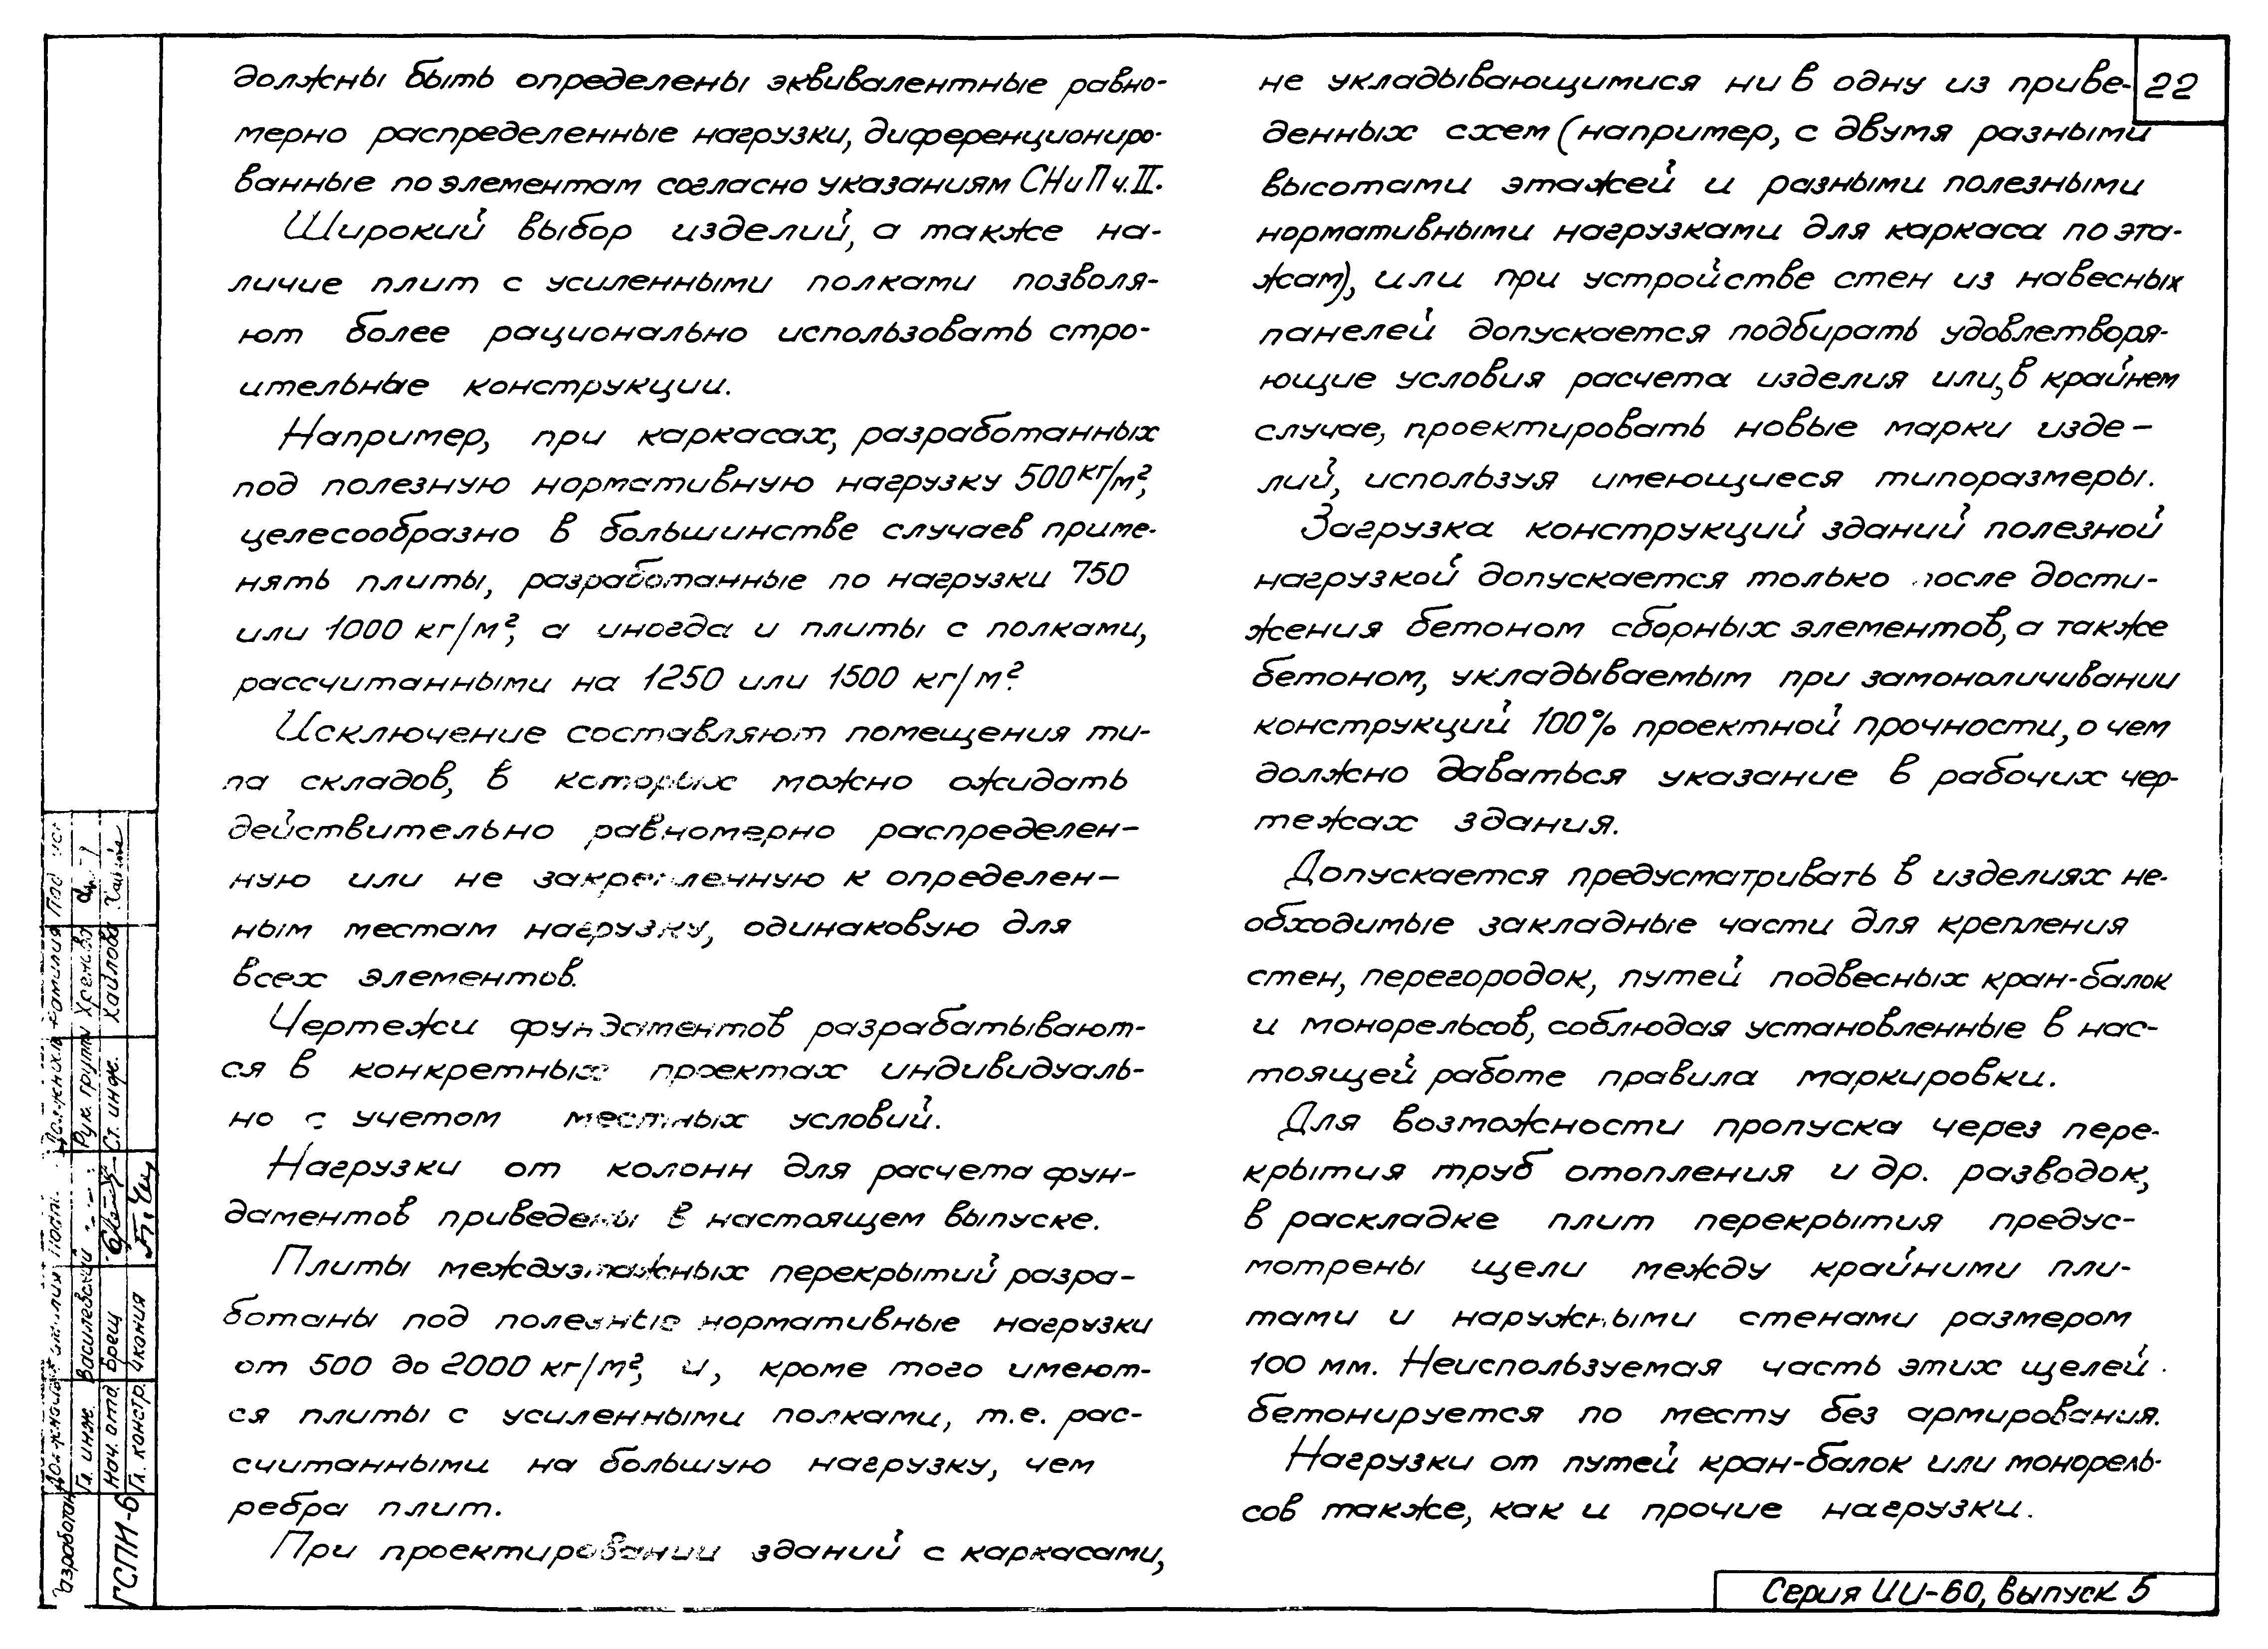 должны быть определены эквивалентные равно-
мерно распределенные нагрузки, диференциониро-
ванные по элементам согласно указаниям СНиП ч. II.
Широкий выбор изделий, а также на-
личие плит с усиленными полками позволя-
ют более рационально использовать стро-
ительные конструкции.
Например, при каркасах, разработанных
под полезную нормативную нагрузку 500 кг/м²,
целесообразно в большинстве случаев приме-
нять плиты, разработанные по нагрузки 750
или 1000 кг/м², а иногда и плиты с полками,
рассчитанными на 1250 или 1500 кг/м².
Исключение составляют помещения ти-
па складов, в которых можно ожидать
действительно равномерно распределен-
ную или не закрепленную к определен-
ным местам нагрузку, одинаковую для
всех элементов.
Чертежи фундаментов разрабатывают-
ся в конкретных проектах индивидуаль-
но с учетом местных условий.
Нагрузки от колонн для расчета фун-
даментов приведены в настоящем выпуске.
Плиты междуэтажных перекрытий разра-
ботаны под полезные нормативные нагрузки
от 500 до 2000 кг/м², и, кроме того имеют-
ся плиты с усиленными полками, т.е. рас-
считанными на большую нагрузку, чем
ребра плит.
При проектировании зданий с каркасами,
не укладывающимися ни в одну из приве-
денных схем (например, с двумя разными
высотами этажей и разными полезными
нормативными нагрузками для каркаса по эта-
жам), или при устройстве стен из навесных
панелей допускается подбирать удовлетворя-
ющие условия расчета изделия или, в крайнем
случае, проектировать новые марки изде-
лий, используя имеющиеся типоразмеры.
Загрузка конструкций зданий полезной
нагрузкой допускается только после дости-
жения бетоном сборных элементов, а также
бетоном, укладываемым при замоноличивании
конструкций 100% проектной прочности, о чем
должно даваться указание в рабочих чер-
тежах здания.
Допускается предусматривать в изделиях не-
обходимые закладные части для крепления
стен, перегородок, путей подвесных кран-балок
и монорельсов, соблюдая установленные в нас-
тоящей работе правила маркировки.
Для возможности пропуска через пере-
крытия труб отопления и др. разводок,
в раскладке плит перекрытия предус-
мотрены щели между крайними пли-
тами и наружными стенами размером
100 мм. Неиспользуемая часть этих щелей
бетонируется по месту без армирования.
Нагрузки от путей кран-балок или монорель-
сов также, как и прочие нагрузки.
22
Серия ИИ-60, выпуск 5
ГСПИ-6
Гл. инж. Василевский
Нач. отд. Брещ
Гл. констр. Чкония
Рук. группы Хренова
Ст. инж. Хайлова